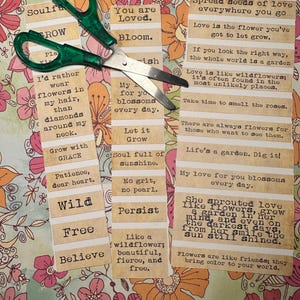 Soulfu
GROW
Pl
I'd rather
wear
flowers in
my hair,
than
diamonds
around my
neck.
Grow with
GRACE
Patience,
dear heart.
Wild
Free
Believe
You are
Loved.
Bloom.
ish
My
for you
blossoms
every day.
Let it
Grow
Soul full of
sunshine.
No grit,
no pearl.
Persist
Like a
wildflower;
beautiful,
fierce, and
free.
Spread seeds of love
everywhere you go
Love is the flower you've
got to let grow,
If you look the right way,
the whole world is a garden.
Love is like wildflowers;
it's often found in the
most unlikely places.
Take time to smell the roses.
There are always flowers for
those who want to see them.
Life's a garden. Dig it!
My love for you blossoms
every day.
She sprouted love
like flowers, grew
a garden in her
mind, and even on
her darkest days,
from her smile the
sun still shined.
Flowers are like friends; they
bring color to your world.